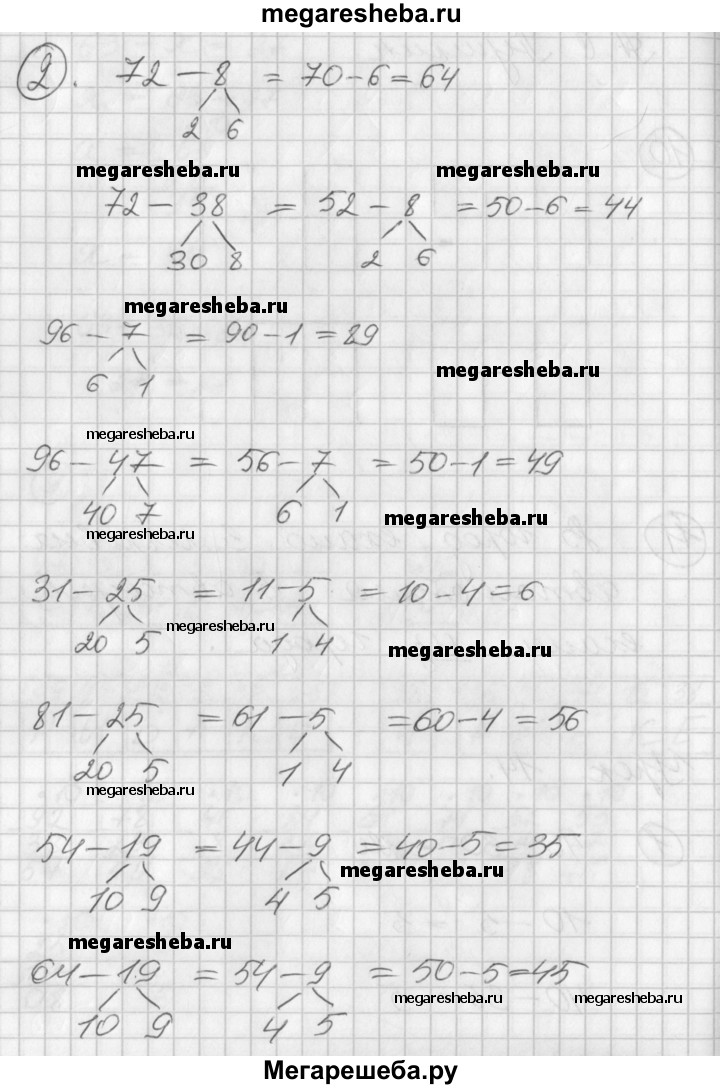 megaresheba.ru
2. 72 – 8 = 70 – 6 = 64
2 6
megaresheba.ru megaresheba.ru
72 – 38 = 52 – 8 = 50 – 6 = 44
30 8 2 6
megaresheba.ru
96 – 7 = 90 – 1 = 89
6 1 megaresheba.ru
megaresheba.ru
96 – 47 = 56 – 7 = 50 – 1 = 49
40 7 6 1 megaresheba.ru
megaresheba.ru
31 – 25 = 11 – 5 = 10 – 4 = 6
megaresheba.ru
20 5 1 4 megaresheba.ru
81 – 25 = 61 – 5 = 60 – 4 = 56
20 5 1 4
megaresheba.ru megaresheba.ru
54 – 19 = 44 – 9 = 40 – 5 = 35
megaresheba.ru
10 9 4 5
megaresheba.ru
64 – 19 = 54 – 9 = 50 – 5 = 45
megaresheba.ru megaresheba.ru
10 9 4 5
Мегарешеба.ру